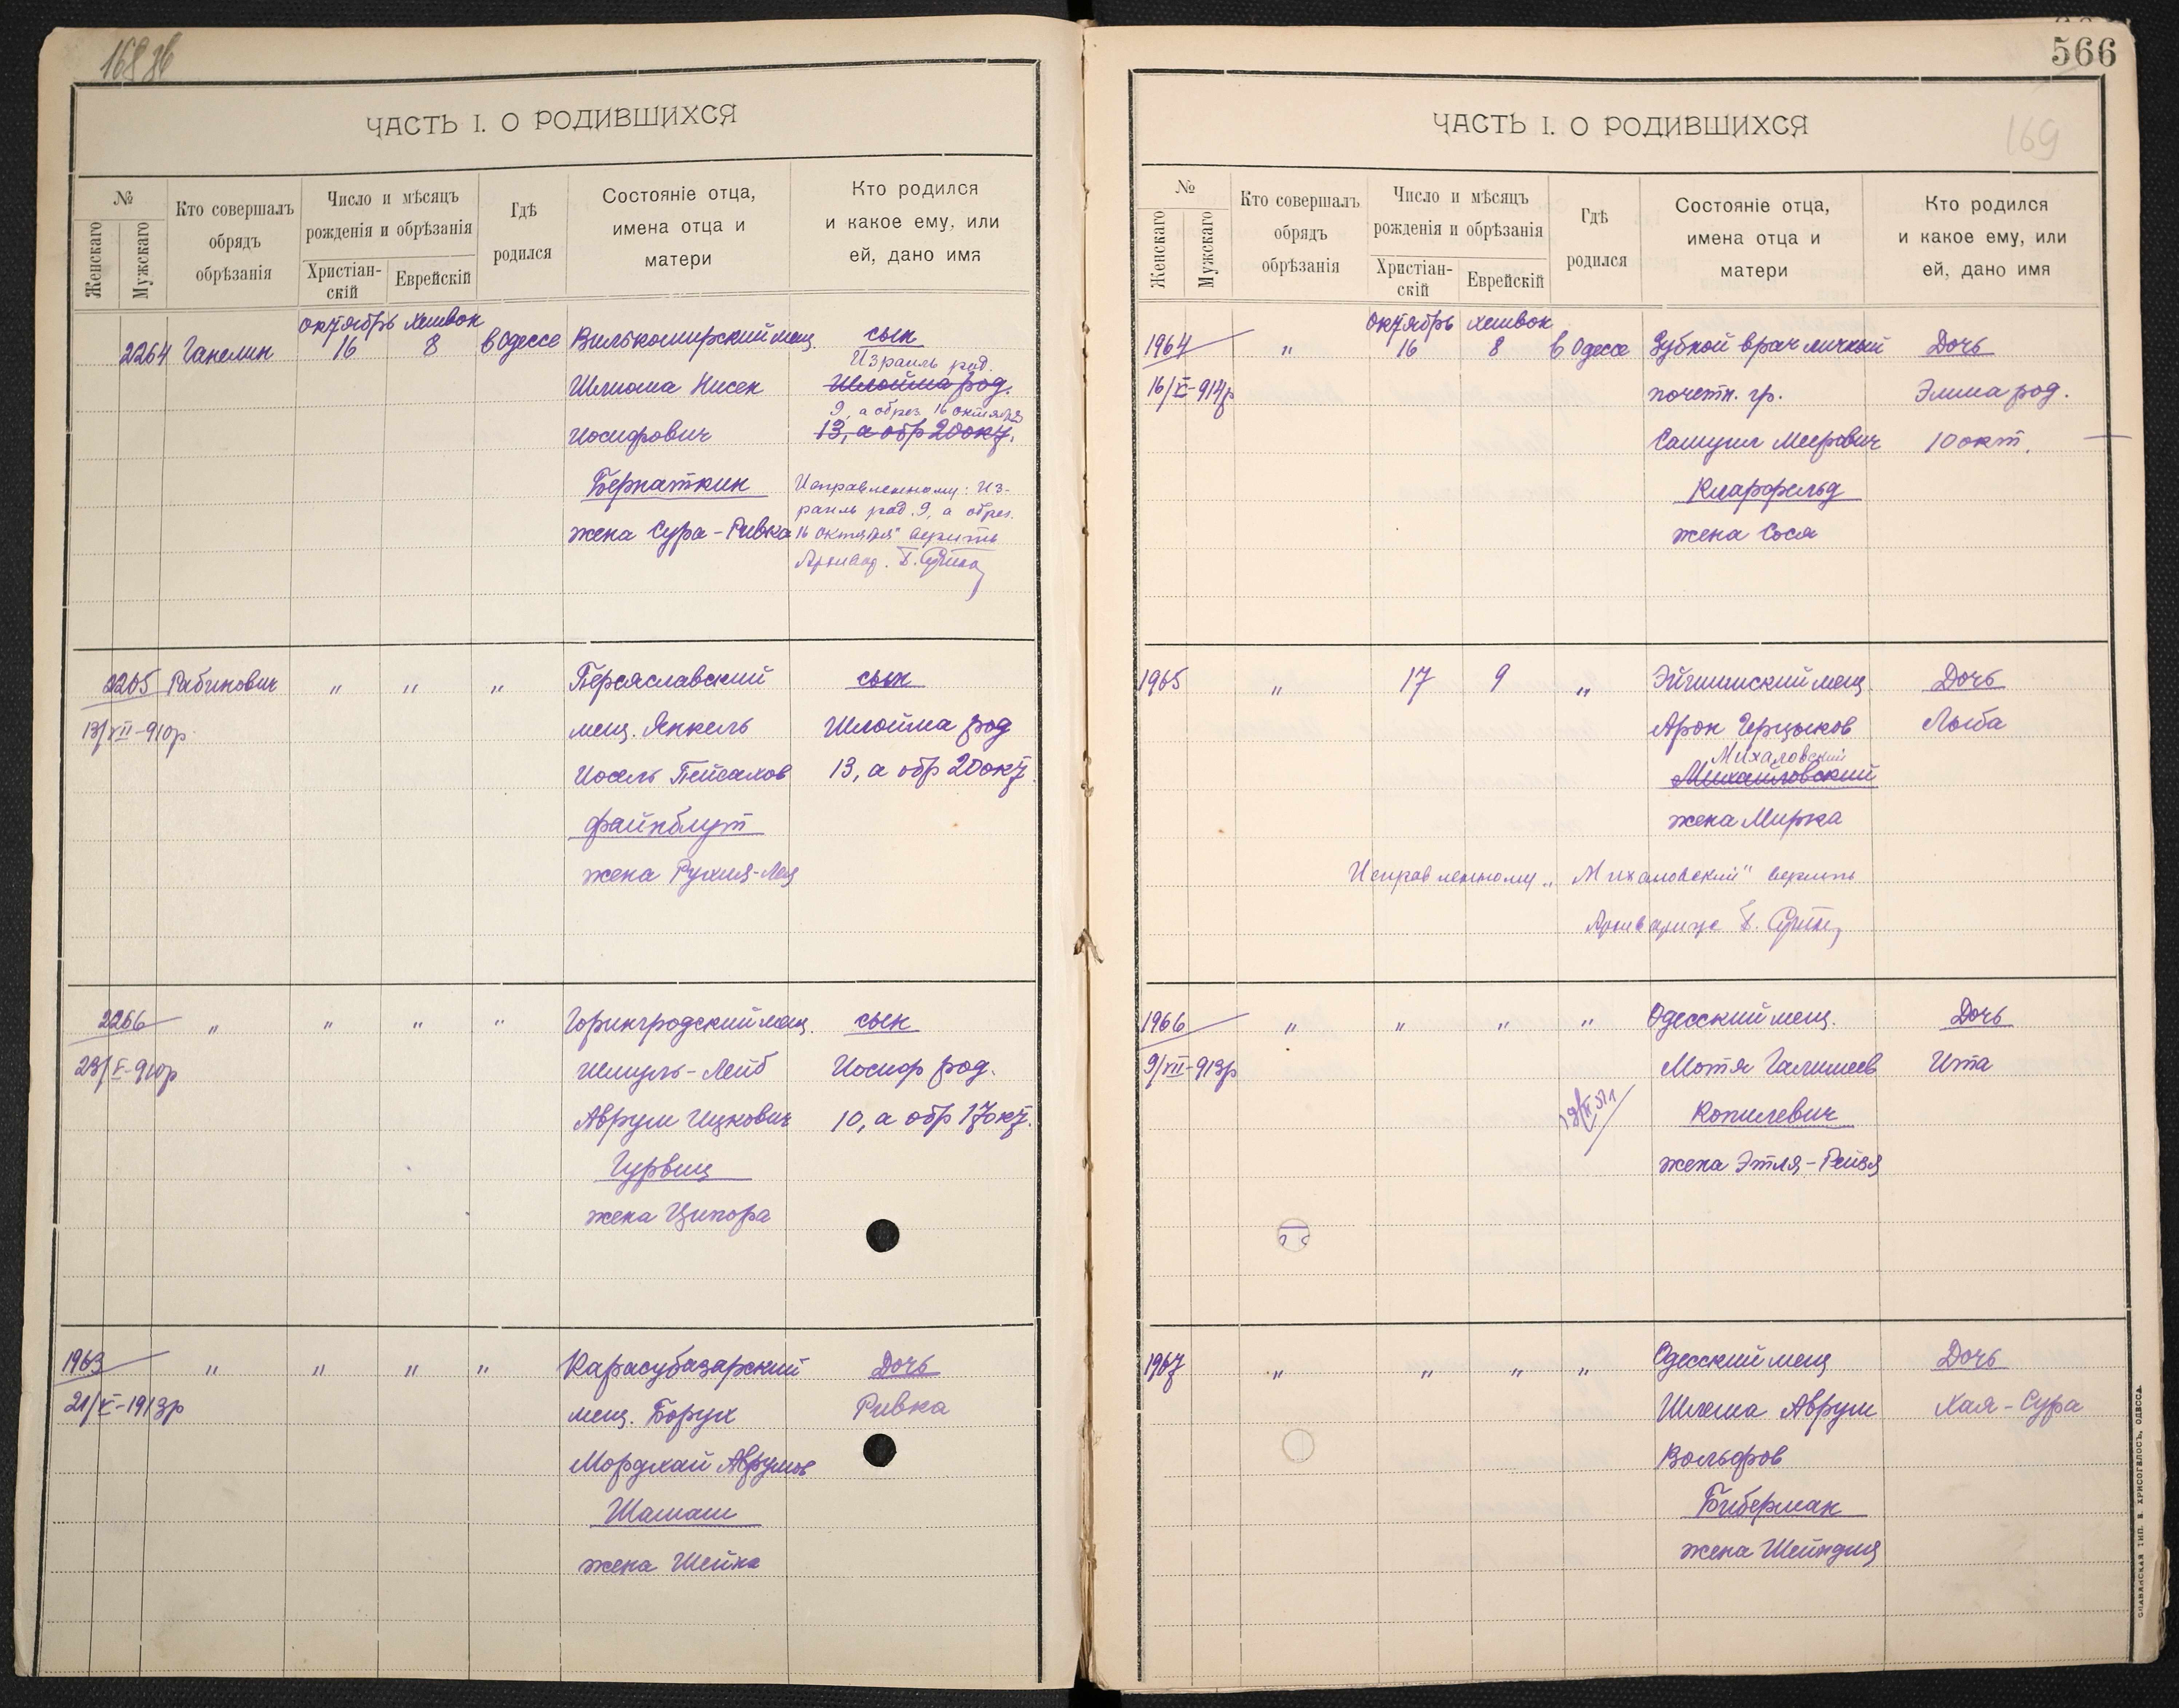 ЧАСТЬ I. О РОДИВШИХСЯ
№
Женскаго
Мужскаго
Кто совершалъ
обрядъ
обрѣзанія
Число и мѣсяцъ
рожденія и обрѣзанія
Христіан-
скій
Еврейскій
Гдѣ
родился
Состояніе отца,
имена отца и
матери
Кто родился
и какое ему, или
ей, дано имя
октябрь хешвон
2264 Ганелин 16 8 в Одессе Вилькомирский мещ сын
Израиль род.
Шлиома Нисен Шлойма род.
9, а обрез 16 октября
Иосифович 13, а обр 20 окт.
Бернаткин Исправленному: Из-
раиль род. 9, а обрез.
жена Сура-Ривка 16 октября" верить
Архивар.
2265 Рабинович " " " Переяславский сын
13/XII-910р мещ. Янкель Шлойма род
Иосель Пейсахов 13, а обр 20 окт.
Файнблут
жена Рухля-Лея
2266 " " " " Горингродский мещ. сын
23/X-910р Шмуль-Лейб Иосиф род.
Аврум Ицкович 10, а обр 17 окт.
Гурвиц
жена Ципора
1963 " " " " Карасубазарский Дочь
21/X-1913р мещ. Борух Ривка
Мордхай Аврумов
Шамаш
жена Шейна
566
169
ЧАСТЬ I. О РОДИВШИХСЯ
№
Женскаго
Мужскаго
Кто совершалъ
обрядъ
обрѣзанія
Число и мѣсяцъ
рожденія и обрѣзанія
Христіан-
скій
Еврейскій
Гдѣ
родился
Состояніе отца,
имена отца и
матери
Кто родился
и какое ему, или
ей, дано имя
октябрь хешвон
1964 " 16 8 в Одессе Зубной врач личный Дочь
16/X-914р почетн. гр. Эмма род.
Самуил Меерович 10 окт.
Кларфельд
жена Сося
1965 " 17 9 " Эйшишский мещ. Дочь
Арон Герцыков Лыба
Михаловский
Михайловский
жена Мирка
Исправленному „Михаловский" верить
1966 " " " " Одесский мещ. Дочь
9/VII-913р Мотя Галишеев Ита
Копилевич
жена Этля-Рейзя
1967 " " " " Одесский мещ Дочь
Шлема Аврум Хая-Сура
Вольфов
Биберман
жена Шейндля
СЛАВЯНСКАЯ ТИП. Н. ХРИСОГЕЛОСЪ, ОДЕССА.